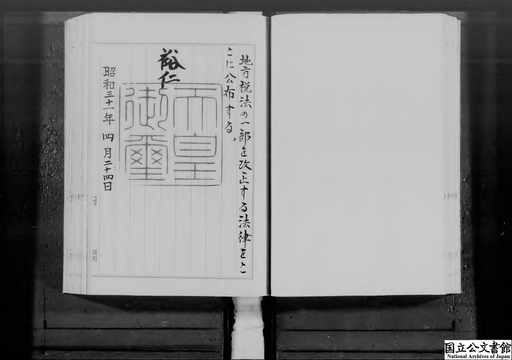 地方税法の一部を改正する法律をこ
こに公布する。
裕仁
天皇
御璽
昭和三十一年四月二十四日
国立公文書館
National Archives of Japan